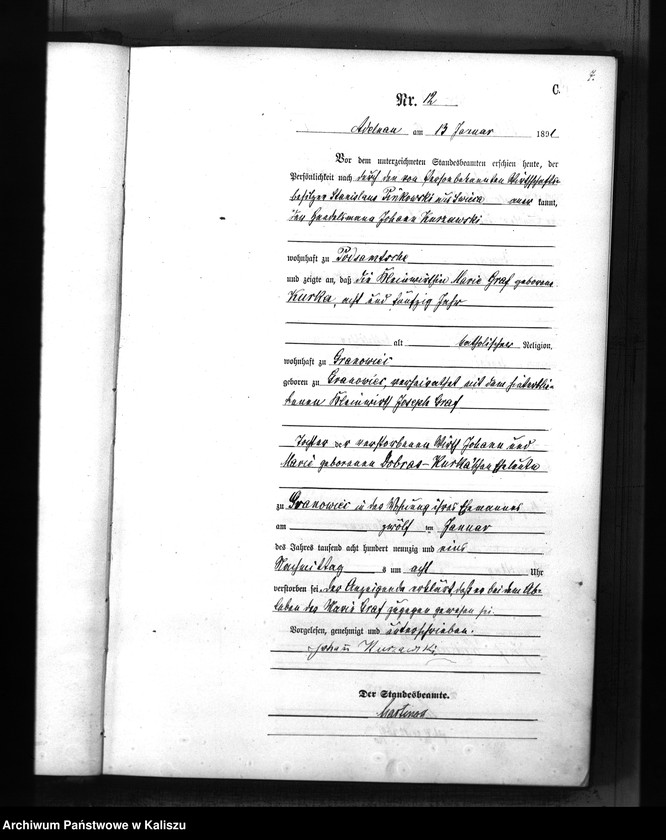 7.
C.
Nr. 12
Adelnau am 13 Januar 1891
Vor dem unterzeichneten Standesbeamten erschien heute, der
Persönlichkeit nach durch den von Person bekannten Wirthschafts-
besitzer Stanislaus aner kannt,
den Handelsmann Johann Kurzawski
wohnhaft zu
und zeigte an, daß die Kleinwirthin Marie Graf geborene
Kurka, acht und fünfzig Jahr
alt katholischer Religion,
wohnhaft zu Granowiec
geboren zu Granowiec, verheirathet mit dem hinterblie-
benen Kleinwirth Joseph Graf
Tochter der verstorbenen Wirth Johann und
Marie geborenen Dobras-Kurka'schen Eheleute
zu Granowiec in der Wohnung ihres Ehemannes
am zwölf ten Januar
des Jahres tausend acht hundert neunzig und eins
Nachmittag s um acht Uhr
verstorben sei. Der Anzeigende erklärt, daß er bei dem Ab-
leben der Marie Graf zugegen gewesen sei.
Vorgelesen, genehmigt und unterschrieben.
Johann Kurzawski
Der Standesbeamte.
Archiwum Państwowe w Kaliszu